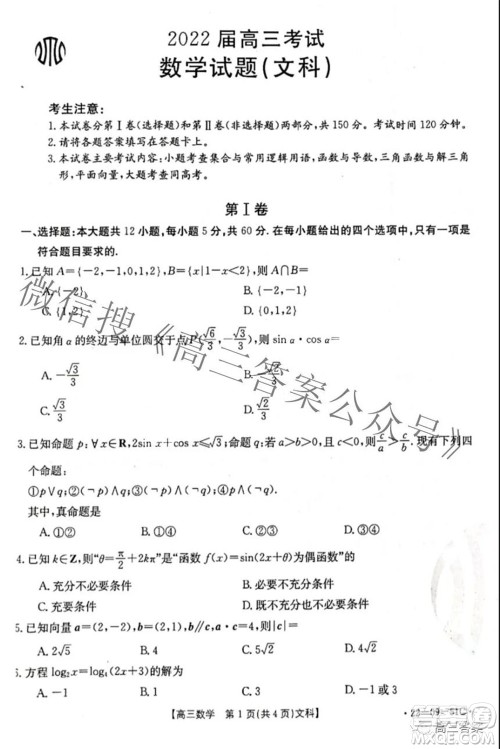 2022届高三考试
数学试题(文科)
考生注意:
1.本试卷分第Ⅰ卷(选择题)和第Ⅱ卷(非选择题)两部分,共150分。考试时间120分钟。
2.请将各题答案填写在答题卡上。
3.本试卷主要考试内容:小题考查集合与常用逻辑用语,函数与导数,三角函数与解三角
形,平面向量,大题考查同高考。
第Ⅰ卷
一、选择题:本大题共12小题,每小题5分,共60分.在给出的四个选项中,只有一项是
符合题目要求的.
1.已知A={-2,-1,0,1,2},B={x|1-x<2},则A∩B=
A.{-2} B.{-2,-1}
C.{1,2} D.{0,1,2}
2.已知角α的终边与单位圆交于点P(√6/3,-√3/3),则sin α·cos α=
A.-√3/3 B.-√2/3
C.√3/3 D.√2/3
3.已知命题p:∀x∈R,2sin x+cos x≤√3;命题q:若a>b>0,且c>0,则c/a>c/b.现有下列四
个命题:
①p∨q;②(¬p)∧(¬q);③p∧(¬q);④(¬p)∨q.
其中,真命题是
A.①② B.①④ C.②③ D.②④
4.已知k∈Z,则“θ=π/2+2kπ”是“函数f(x)=sin(2x+θ)为偶函数”的
A.充分不必要条件 B.必要不充分条件
C.充要条件 D.既不充分也不必要条件
5.已知向量a=(2,-2),b=(2,1),b∥c,a·c=4,则|c|=
A.2√5 B.4 C.5√2 D.4√2
6.方程log₂x=log₄(2x+3)的解为
【高三数学 第1页(共4页)文科】
微信搜《高三答案公众号》
高三答案